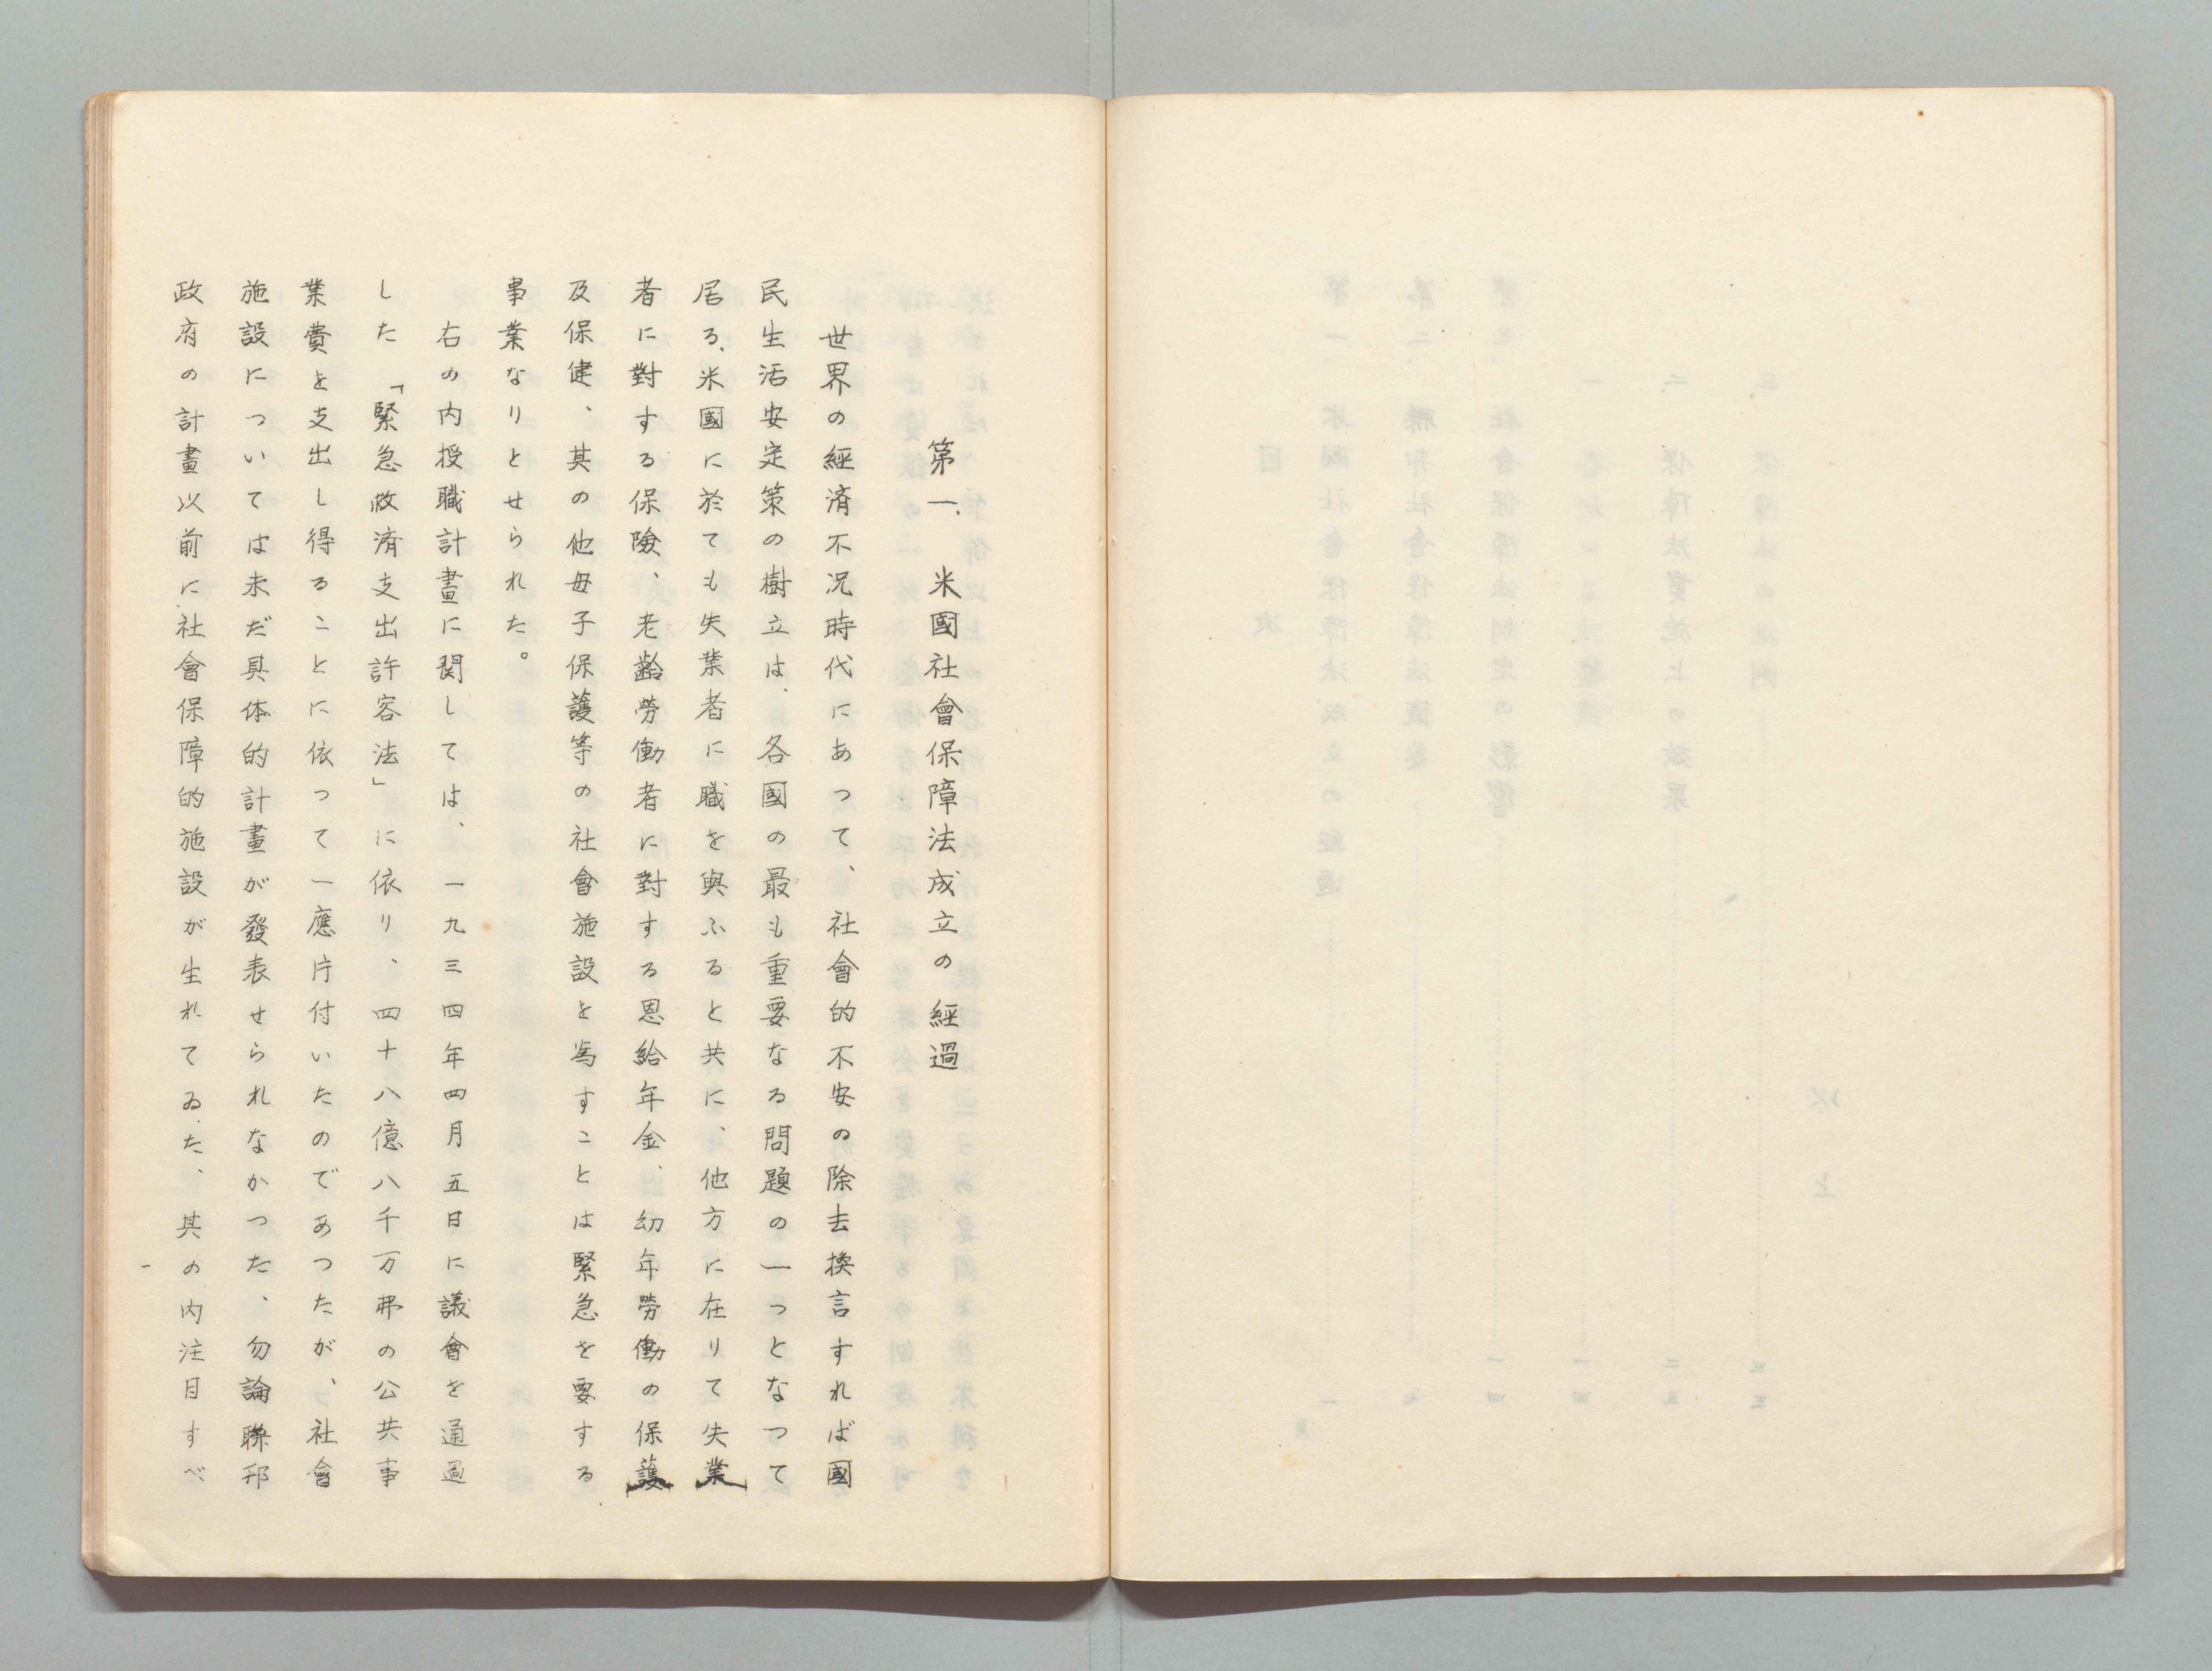 第一、米國社會保障法成立の經過
世界の經済不況時代にあつて、社會的不安の除去換言すれば國
民生活安定策の樹立は、各國の最も重要なる問題の一つとなつて
居る、米國に於ても失業者に職を與ふると共に、他方に在りて失業
者に對する保險、老齢勞働者に對する恩給年金、幼年勞働の保護
及保健、其の他母子保護等の社會施設を為すことは緊急を要する
事業なりとせられた。
右の内授職計畫に関しては、一九三四年四月五日に議會を通過
した「緊急救済支出許容法」に依り、四十八億八千万弗の公共事
業費を支出し得ることに依つて一應片付いたのであつたが、社會
施設については未だ具体的計畫が發表せられなかつた、勿論聯邦
政府の計畫以前に社會保障的施設が生れてゐた、其の内注目すべ
一